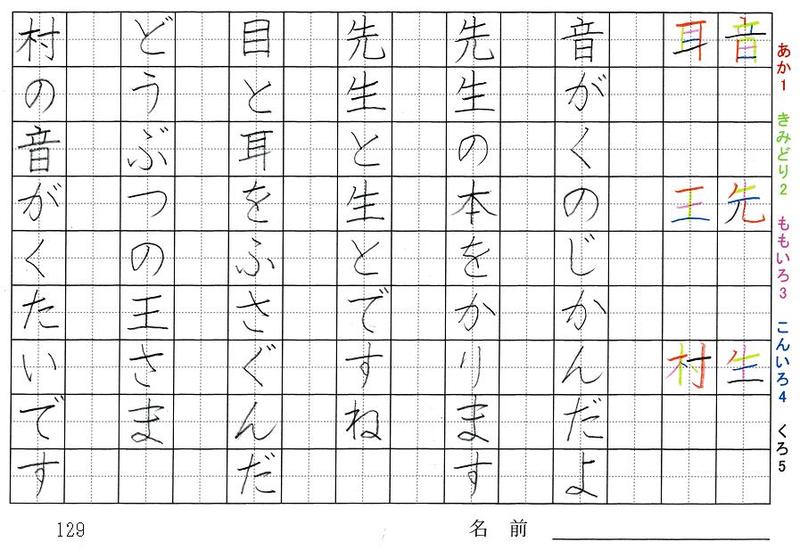 あか1 きみどり2 ももいろ3 こんいろ4 くろ5
音 先 生
耳 王 村
音がくのじかんだよ
先生の本をかります
先生と生とですね
目と耳をふさぐんだ
どうぶつの王さま
村の音がくたいです
129
名前